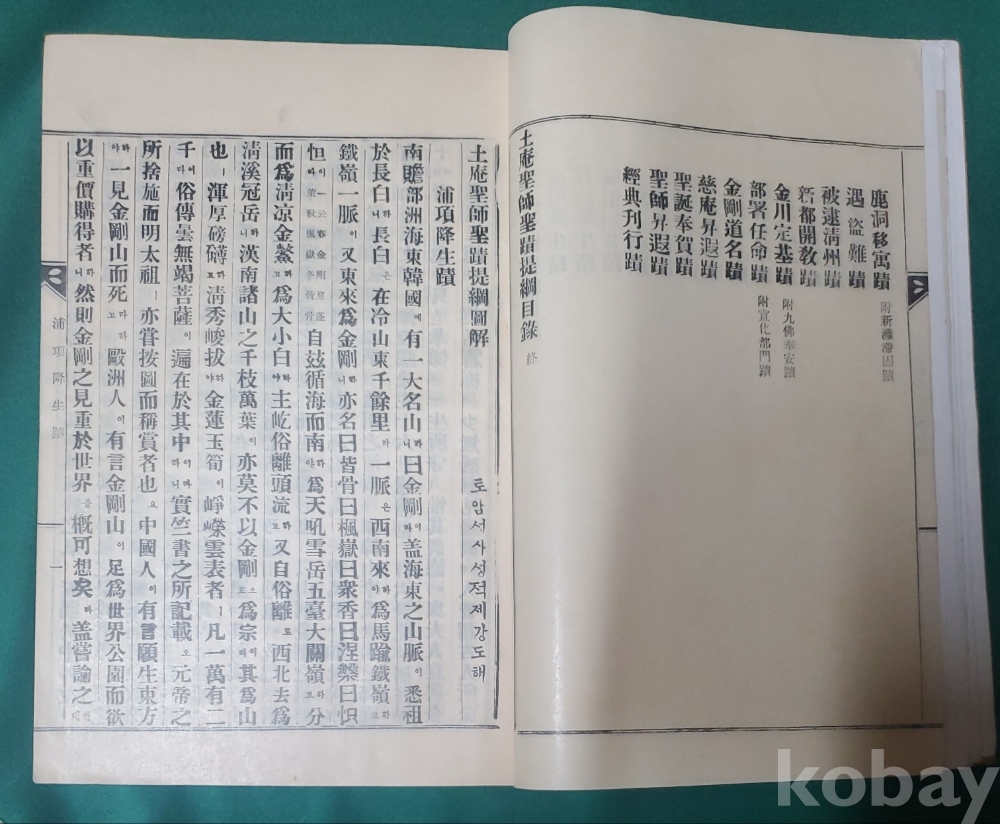 鹿洞移寓蹟 附新灘滯囚蹟
遇盜難蹟
被逮淸州蹟
新都開敎蹟
金川定基蹟 附九佛奉安蹟
部署任命蹟 附宣化部門蹟
金剛道名蹟
慈庵昇遐蹟
聖誕奉賀蹟
聖師昇遐蹟
經典刊行蹟
土庵聖師聖蹟提綱目錄 終
土庵聖師聖蹟提綱圖解 토암성사성적제강도해
浦項降生蹟
南贍部洲海東韓國에有一大名山하니曰金剛이라盖海東之山脈이悉祖
於長白하니長白은在冷山東千餘里라一脈은西南來하야爲馬踰鐵嶺하고
鐵嶺一脈이又東來爲金剛하니亦名曰皆骨曰楓嶽曰衆香曰涅槃曰怾
怛이라 自玆循海而南하야爲天吼雪岳五臺大關嶺하고分
而爲淸凉金鰲하고爲大小白하야主屹俗離頭流하고又自俗離로西北去爲
淸溪冠岳하니漢南諸山之千枝萬葉이亦莫不以金剛으로爲宗하다其爲山
也ㅣ渾厚磅礴하고淸秀峻拔하야金蓮玉筍이崢嶸雲表者ㅣ凡一萬有二
千이라俗傳曇無竭菩薩이遍在於其中이라하니實竺書之所記載오元帝之
所捨施而明太祖ㅣ亦甞按圖而稱賞者也오中國人이有言願生東方
하야一見金剛山而死라하고歐洲人이有言金剛山이足爲世界公園而欲
以重價購得者하니然則金剛之見重於世界를槪可想矣라盖嘗論之컨대
浦項降生蹟
一
kobay